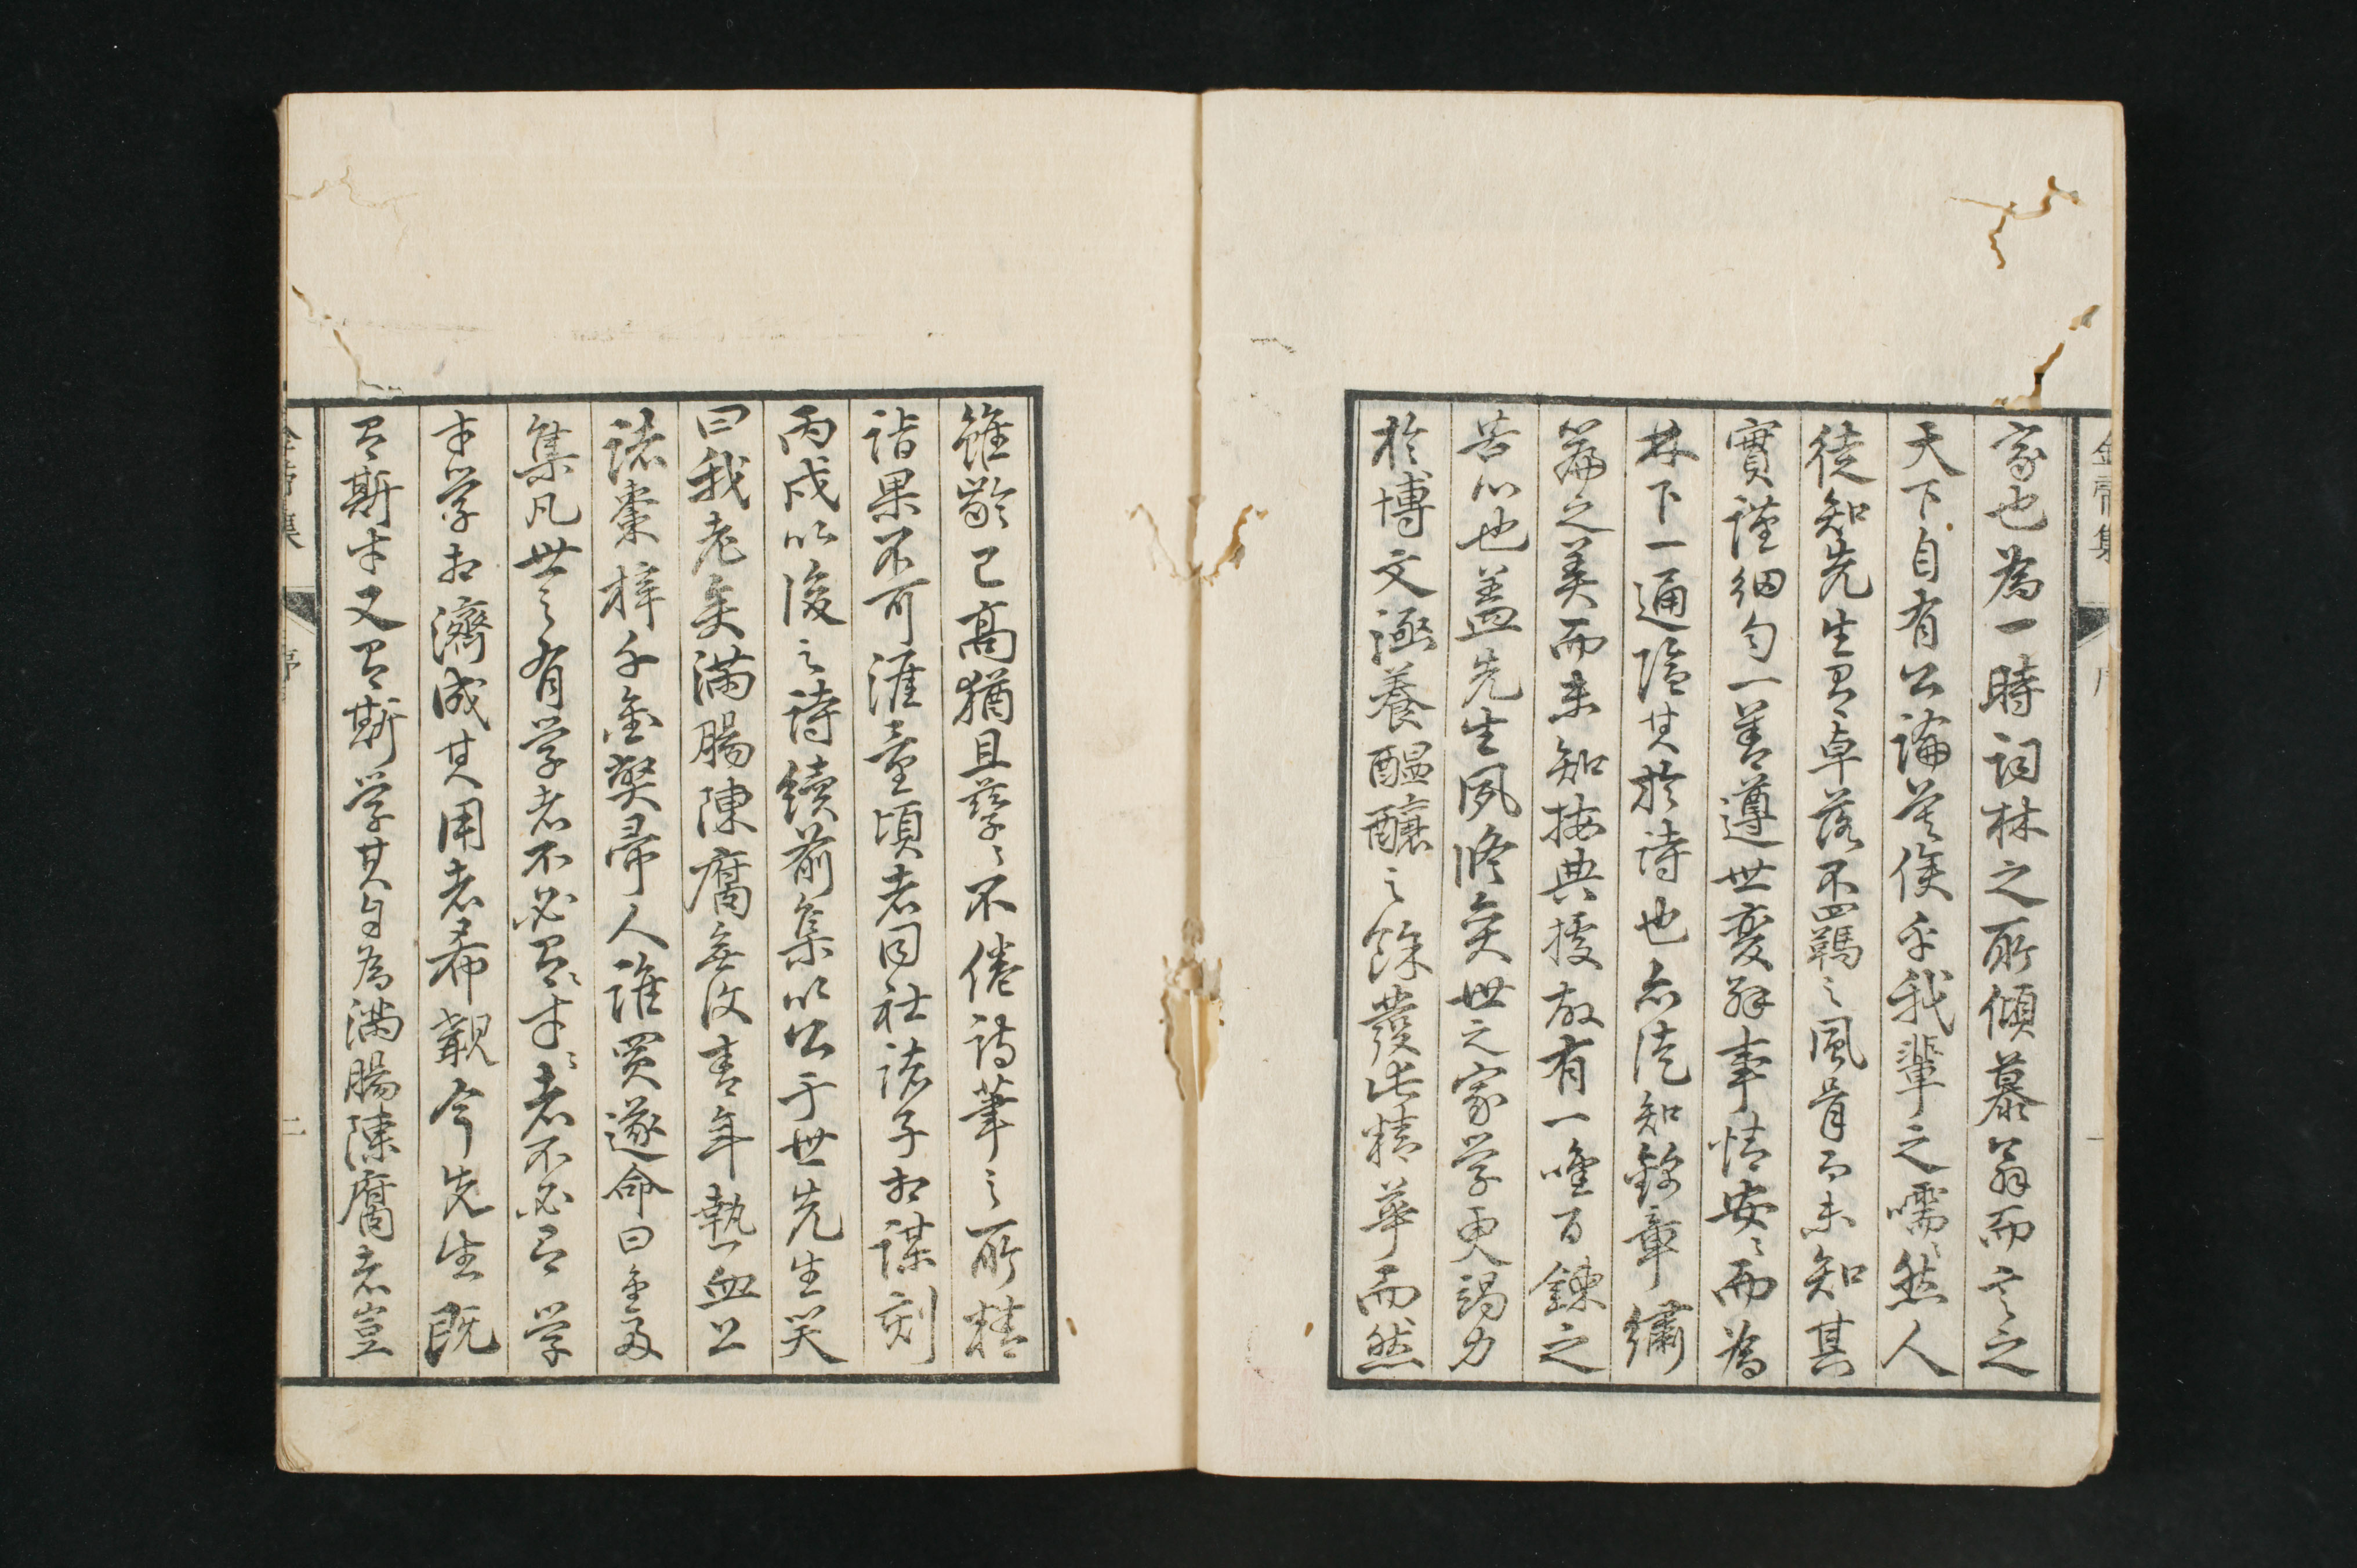 金帚集 序 一
家也為一時詞林之所傾慕翁而言之
天下自有公論莫俟乎我輩之嚅々然人
徒知先生有卓落不羈之風骨而未知其
實謹細勾一善遵世変解事情安々而為
林下一通隠其於詩也亦徒知錦章繍
篇之美而未知按典援故有一唾百錬之
苦心也蓋先生夙脩奕世之家学更竭力
於博文涵養醞醸之餘發此精華而然
雖齢已高猶且孳々不倦詩筆之所精
詣果不可涯量頃者同社諸子相謀刻
丙戌以後之詩續前集以公于世先生笑
曰我老矣満腸陳腐無復青年熱血上
諸棗梓千金獘帚人誰買遂命曰金帚
集凡世之有学者不必有才々者不必有学
才学相濟成其用者希覯今先生既
有斯才又有斯学其自為満腸陳腐者豈
金帚集 序 二